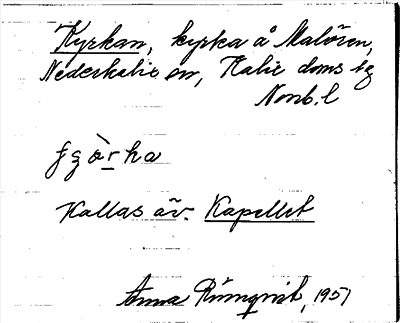 Kyrkan, kyrka å Malören,
Nederkalix sn, Kalix doms bg
Nonb. l
Kallas äv. Kapellet
Anna Rönnqvist, 1951